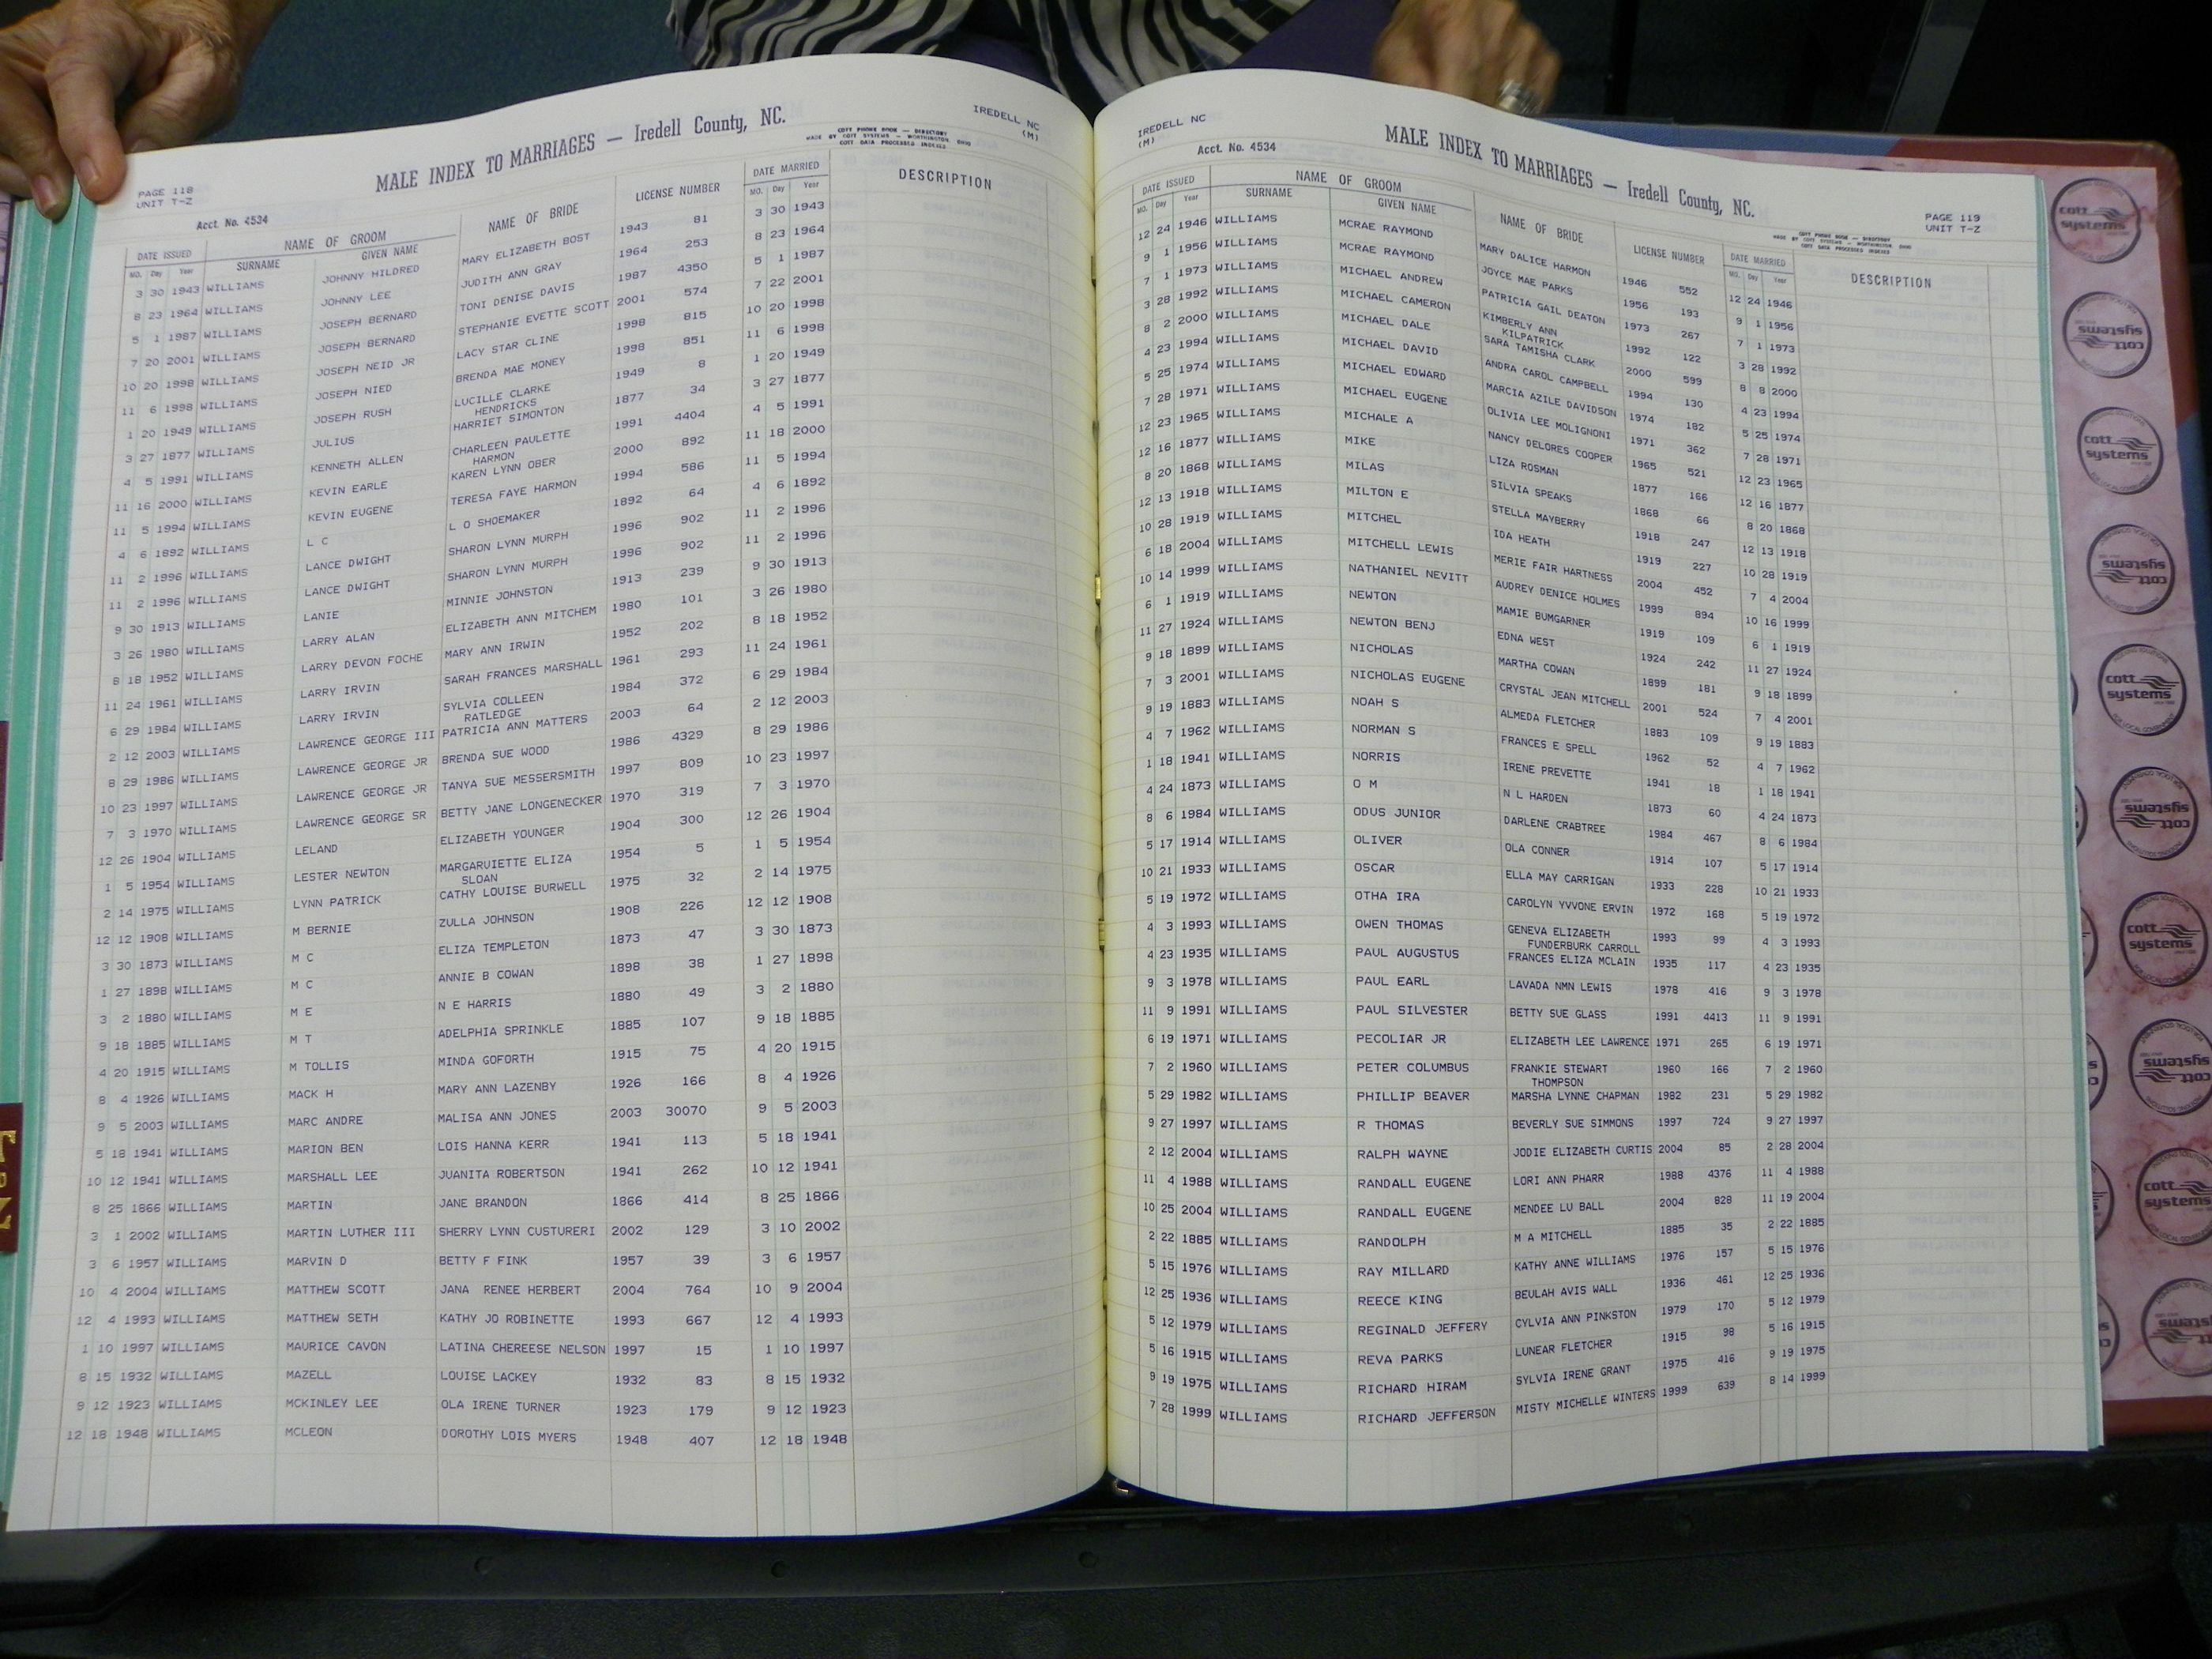 PAGE 118
UNIT T-Z
MALE INDEX TO MARRIAGES — Iredell County, NC.
COTT PHONE BOOK — DIRECTORY
MADE BY COTT SYSTEMS — WORTHINGTON OHIO
COTT DATA PROCESSED INDEXES
IREDELL NC
(M)
Acct. No. 4534
DATE ISSUED NAME OF GROOM NAME OF BRIDE LICENSE NUMBER DATE MARRIED DESCRIPTION
MO. Day Year SURNAME GIVEN NAME MO. Day Year
3 30 1943 WILLIAMS JOHNNY HILDRED MARY ELIZABETH BOST 1943 81 3 30 1943
8 23 1964 WILLIAMS JOHNNY LEE JUDITH ANN GRAY 1964 253 8 23 1964
5 1 1987 WILLIAMS JOSEPH BERNARD TONI DENISE DAVIS 1987 4350 5 1 1987
7 20 2001 WILLIAMS JOSEPH BERNARD STEPHANIE EVETTE SCOTT 2001 574 7 22 2001
10 20 1998 WILLIAMS JOSEPH NEID JR LACY STAR CLINE 1998 815 10 20 1998
11 6 1998 WILLIAMS JOSEPH NIED BRENDA MAE MONEY 1998 851 11 6 1998
1 20 1949 WILLIAMS JOSEPH RUSH LUCILLE CLARKE 1949 8 1 20 1949
HENDRICKS
3 27 1877 WILLIAMS JULIUS HARRIET SIMONTON 1877 34 3 27 1877
4 5 1991 WILLIAMS KENNETH ALLEN CHARLEEN PAULETTE 1991 4404 4 5 1991
HARMON
11 16 2000 WILLIAMS KEVIN EARLE KAREN LYNN OBER 2000 892 11 18 2000
11 5 1994 WILLIAMS KEVIN EUGENE TERESA FAYE HARMON 1994 586 11 5 1994
4 6 1892 WILLIAMS L C L O SHOEMAKER 1892 64 4 6 1892
11 2 1996 WILLIAMS LANCE DWIGHT SHARON LYNN MURPH 1996 902 11 2 1996
11 2 1996 WILLIAMS LANCE DWIGHT SHARON LYNN MURPH 1996 902 11 2 1996
9 30 1913 WILLIAMS LANIE MINNIE JOHNSTON 1913 239 9 30 1913
3 26 1980 WILLIAMS LARRY ALAN ELIZABETH ANN MITCHEM 1980 101 3 26 1980
8 18 1952 WILLIAMS LARRY DEVON FOCHE MARY ANN IRWIN 1952 202 8 18 1952
11 24 1961 WILLIAMS LARRY IRVIN SARAH FRANCES MARSHALL 1961 293 11 24 1961
6 29 1984 WILLIAMS LARRY IRVIN SYLVIA COLLEEN 1984 372 6 29 1984
RATLEDGE
2 12 2003 WILLIAMS LAWRENCE GEORGE III PATRICIA ANN MATTERS 2003 64 2 12 2003
8 29 1986 WILLIAMS LAWRENCE GEORGE JR BRENDA SUE WOOD 1986 4329 8 29 1986
10 23 1997 WILLIAMS LAWRENCE GEORGE JR TANYA SUE MESSERSMITH 1997 809 10 23 1997
7 3 1970 WILLIAMS LAWRENCE GEORGE SR BETTY JANE LONGENECKER 1970 319 7 3 1970
12 26 1904 WILLIAMS LELAND ELIZABETH YOUNGER 1904 300 12 26 1904
1 5 1954 WILLIAMS LESTER NEWTON MARGARUIETTE ELIZA 1954 5 1 5 1954
SLOAN
2 14 1975 WILLIAMS LYNN PATRICK CATHY LOUISE BURWELL 1975 32 2 14 1975
12 12 1908 WILLIAMS M BERNIE ZULLA JOHNSON 1908 226 12 12 1908
3 30 1873 WILLIAMS M C ELIZA TEMPLETON 1873 47 3 30 1873
1 27 1898 WILLIAMS M C ANNIE B COWAN 1898 38 1 27 1898
3 2 1880 WILLIAMS M E N E HARRIS 1880 49 3 2 1880
9 18 1885 WILLIAMS M T ADELPHIA SPRINKLE 1885 107 9 18 1885
4 20 1915 WILLIAMS M TOLLIS MINDA GOFORTH 1915 75 4 20 1915
8 4 1926 WILLIAMS MACK H MARY ANN LAZENBY 1926 166 8 4 1926
9 5 2003 WILLIAMS MARC ANDRE MALISA ANN JONES 2003 30070 9 5 2003
5 18 1941 WILLIAMS MARION BEN LOIS HANNA KERR 1941 113 5 18 1941
10 12 1941 WILLIAMS MARSHALL LEE JUANITA ROBERTSON 1941 262 10 12 1941
8 25 1866 WILLIAMS MARTIN JANE BRANDON 1866 414 8 25 1866
3 1 2002 WILLIAMS MARTIN LUTHER III SHERRY LYNN CUSTURERI 2002 129 3 10 2002
3 6 1957 WILLIAMS MARVIN D BETTY F FINK 1957 39 3 6 1957
10 4 2004 WILLIAMS MATTHEW SCOTT JANA RENEE HERBERT 2004 764 10 9 2004
12 4 1993 WILLIAMS MATTHEW SETH KATHY JO ROBINETTE 1993 667 12 4 1993
1 10 1997 WILLIAMS MAURICE CAVON LATINA CHEREESE NELSON 1997 15 1 10 1997
8 15 1932 WILLIAMS MAZELL LOUISE LACKEY 1932 83 8 15 1932
9 12 1923 WILLIAMS MCKINLEY LEE OLA IRENE TURNER 1923 179 9 12 1923
12 18 1948 WILLIAMS MCLEON DOROTHY LOIS MYERS 1948 407 12 18 1948
IREDELL NC
(M)
Acct. No. 4534
MALE INDEX TO MARRIAGES — Iredell County, NC.
PAGE 119
UNIT T-Z
COTT PHONE BOOK — DIRECTORY
MADE BY COTT SYSTEMS — WORTHINGTON OHIO
COTT DATA PROCESSED INDEXES
DATE ISSUED NAME OF GROOM NAME OF BRIDE LICENSE NUMBER DATE MARRIED DESCRIPTION
MO. Day Year SURNAME GIVEN NAME MO. Day Year
12 24 1946 WILLIAMS MCRAE RAYMOND MARY DALICE HARMON 1946 552 12 24 1946
9 1 1956 WILLIAMS MCRAE RAYMOND JOYCE MAE PARKS 1956 193 9 1 1956
7 1 1973 WILLIAMS MICHAEL ANDREW PATRICIA GAIL DEATON 1973 267 7 1 1973
3 28 1992 WILLIAMS MICHAEL CAMERON KIMBERLY ANN 1992 122 3 28 1992
KILPATRICK
8 2 2000 WILLIAMS MICHAEL DALE SARA TAMISHA CLARK 2000 599 8 8 2000
4 23 1994 WILLIAMS MICHAEL DAVID ANDRA CAROL CAMPBELL 1994 130 4 23 1994
5 25 1974 WILLIAMS MICHAEL EDWARD MARCIA AZILE DAVIDSON 1974 182 5 25 1974
7 28 1971 WILLIAMS MICHAEL EUGENE OLIVIA LEE MOLIGNONI 1971 362 7 28 1971
12 23 1965 WILLIAMS MICHALE A NANCY DELORES COOPER 1965 521 12 23 1965
12 16 1877 WILLIAMS MIKE LIZA ROSMAN 1877 166 12 16 1877
8 20 1868 WILLIAMS MILAS SILVIA SPEAKS 1868 66 8 20 1868
12 13 1918 WILLIAMS MILTON E STELLA MAYBERRY 1918 247 12 13 1918
10 28 1919 WILLIAMS MITCHEL IDA HEATH 1919 227 10 28 1919
6 18 2004 WILLIAMS MITCHELL LEWIS MERIE FAIR HARTNESS 2004 452 7 4 2004
10 14 1999 WILLIAMS NATHANIEL NEVITT AUDREY DENICE HOLMES 1999 894 10 16 1999
6 1 1919 WILLIAMS NEWTON MAMIE BUMGARNER 1919 109 6 1 1919
11 27 1924 WILLIAMS NEWTON BENJ EDNA WEST 1924 242 11 27 1924
9 18 1899 WILLIAMS NICHOLAS MARTHA COWAN 1899 181 9 18 1899
7 3 2001 WILLIAMS NICHOLAS EUGENE CRYSTAL JEAN MITCHELL 2001 524 7 4 2001
9 19 1883 WILLIAMS NOAH S ALMEDA FLETCHER 1883 109 9 19 1883
4 7 1962 WILLIAMS NORMAN S FRANCES E SPELL 1962 52 4 7 1962
1 18 1941 WILLIAMS NORRIS IRENE PREVETTE 1941 18 1 18 1941
4 24 1873 WILLIAMS O M N L HARDEN 1873 60 4 24 1873
8 6 1984 WILLIAMS ODUS JUNIOR DARLENE CRABTREE 1984 467 8 6 1984
5 17 1914 WILLIAMS OLIVER OLA CONNER 1914 107 5 17 1914
10 21 1933 WILLIAMS OSCAR ELLA MAY CARRIGAN 1933 228 10 21 1933
5 19 1972 WILLIAMS OTHA IRA CAROLYN YVVONE ERVIN 1972 168 5 19 1972
4 3 1993 WILLIAMS OWEN THOMAS GENEVA ELIZABETH 1993 99 4 3 1993
FUNDERBURK CARROLL
4 23 1935 WILLIAMS PAUL AUGUSTUS FRANCES ELIZA MCLAIN 1935 117 4 23 1935
9 3 1978 WILLIAMS PAUL EARL LAVADA NMN LEWIS 1978 416 9 3 1978
11 9 1991 WILLIAMS PAUL SILVESTER BETTY SUE GLASS 1991 4413 11 9 1991
6 19 1971 WILLIAMS PECOLIAR JR ELIZABETH LEE LAWRENCE 1971 265 6 19 1971
7 2 1960 WILLIAMS PETER COLUMBUS FRANKIE STEWART 1960 166 7 2 1960
THOMPSON
5 29 1982 WILLIAMS PHILLIP BEAVER MARSHA LYNNE CHAPMAN 1982 231 5 29 1982
9 27 1997 WILLIAMS R THOMAS BEVERLY SUE SIMMONS 1997 724 9 27 1997
2 12 2004 WILLIAMS RALPH WAYNE JODIE ELIZABETH CURTIS 2004 85 2 28 2004
11 4 1988 WILLIAMS RANDALL EUGENE LORI ANN PHARR 1988 4376 11 4 1988
10 25 2004 WILLIAMS RANDALL EUGENE MENDEE LU BALL 2004 828 11 19 2004
2 22 1885 WILLIAMS RANDOLPH M A MITCHELL 1885 35 2 22 1885
5 15 1976 WILLIAMS RAY MILLARD KATHY ANNE WILLIAMS 1976 157 5 15 1976
12 25 1936 WILLIAMS REECE KING BEULAH AVIS WALL 1936 461 12 25 1936
5 12 1979 WILLIAMS REGINALD JEFFERY CYLVIA ANN PINKSTON 1979 170 5 12 1979
5 16 1915 WILLIAMS REVA PARKS LUNEAR FLETCHER 1915 98 5 16 1915
9 19 1975 WILLIAMS RICHARD HIRAM SYLVIA IRENE GRANT 1975 416 9 19 1975
7 28 1999 WILLIAMS RICHARD JEFFERSON MISTY MICHELLE WINTERS 1999 639 8 14 1999
cott
systems
cott
systems
cott
systems
cott
systems
cott
systems
cott
systems
cott
systems
cott
systems
cott
systems